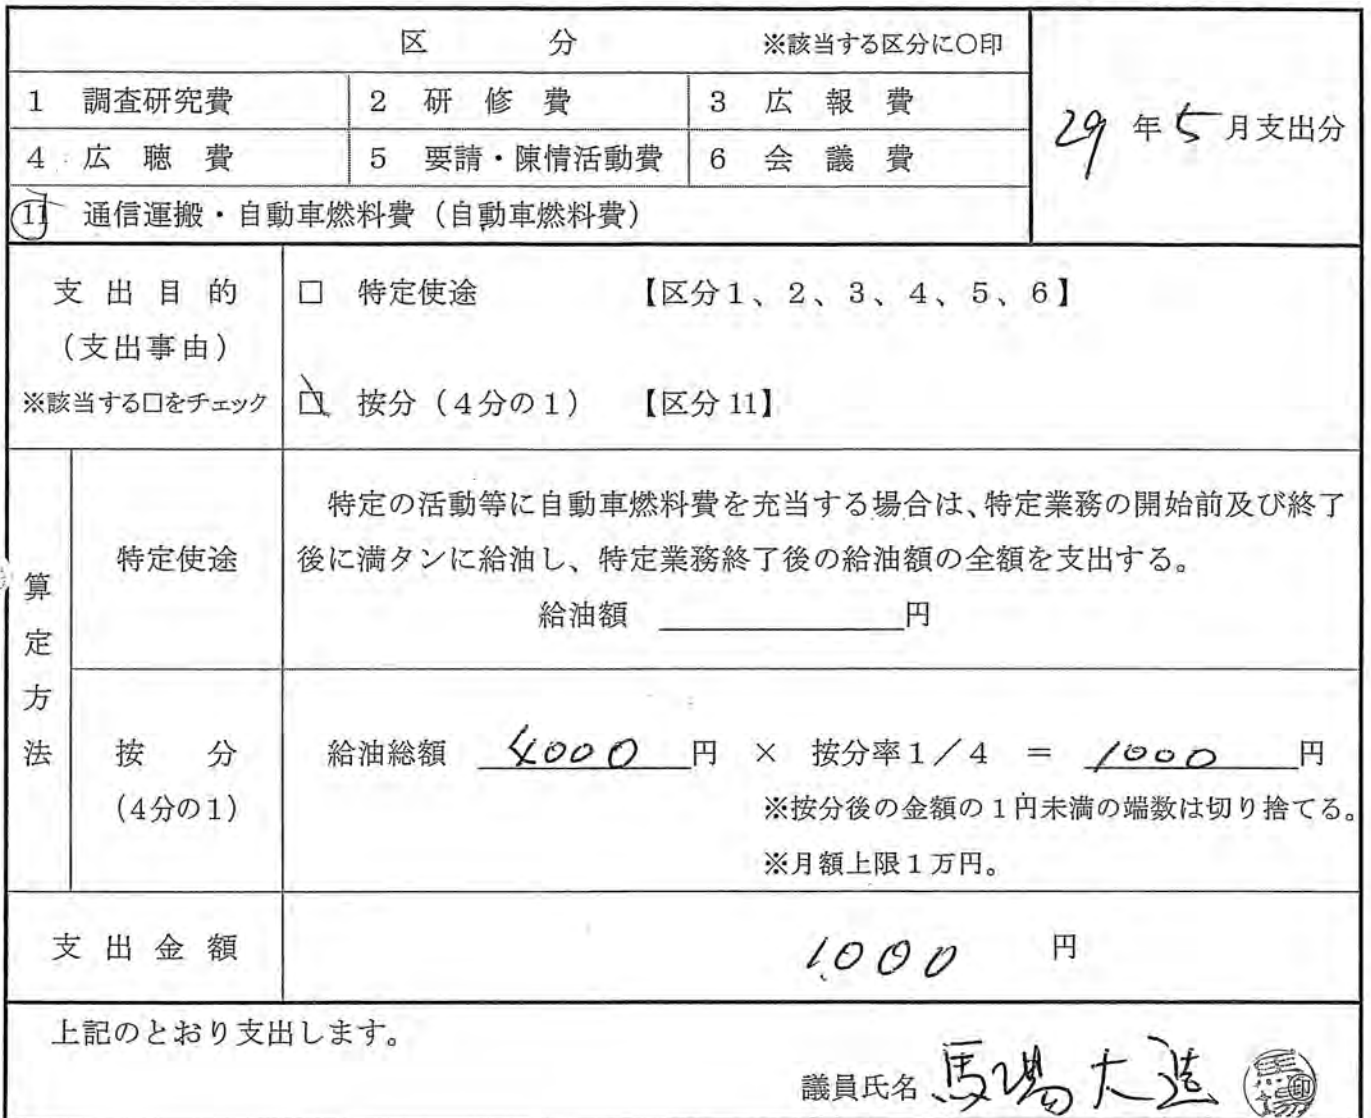 区 分 ※該当する区分に○印
1 調査研究費 2 研修費 3 広報費
29年5月支出分
4 広聴費 5 要請・陳情活動費 6 会議費
11 通信運搬・自動車燃料費（自動車燃料費）
支出目的
（支出事由）
※該当する□をチェック
□ 特定使途 【区分1、2、3、4、5、6】
□ 按分（4分の1） 【区分11】
算定方法
特定使途
特定の活動等に自動車燃料費を充当する場合は、特定業務の開始前及び終了
後に満タンに給油し、特定業務終了後の給油額の全額を支出する。
給油額 円
按分
（4分の1）
給油総額 4000 円 × 按分率1／4 ＝ 1000 円
※按分後の金額の1円未満の端数は切り捨てる。
※月額上限1万円。
支出金額 1000 円
上記のとおり支出します。
議員氏名 馬場大造 馬場 印